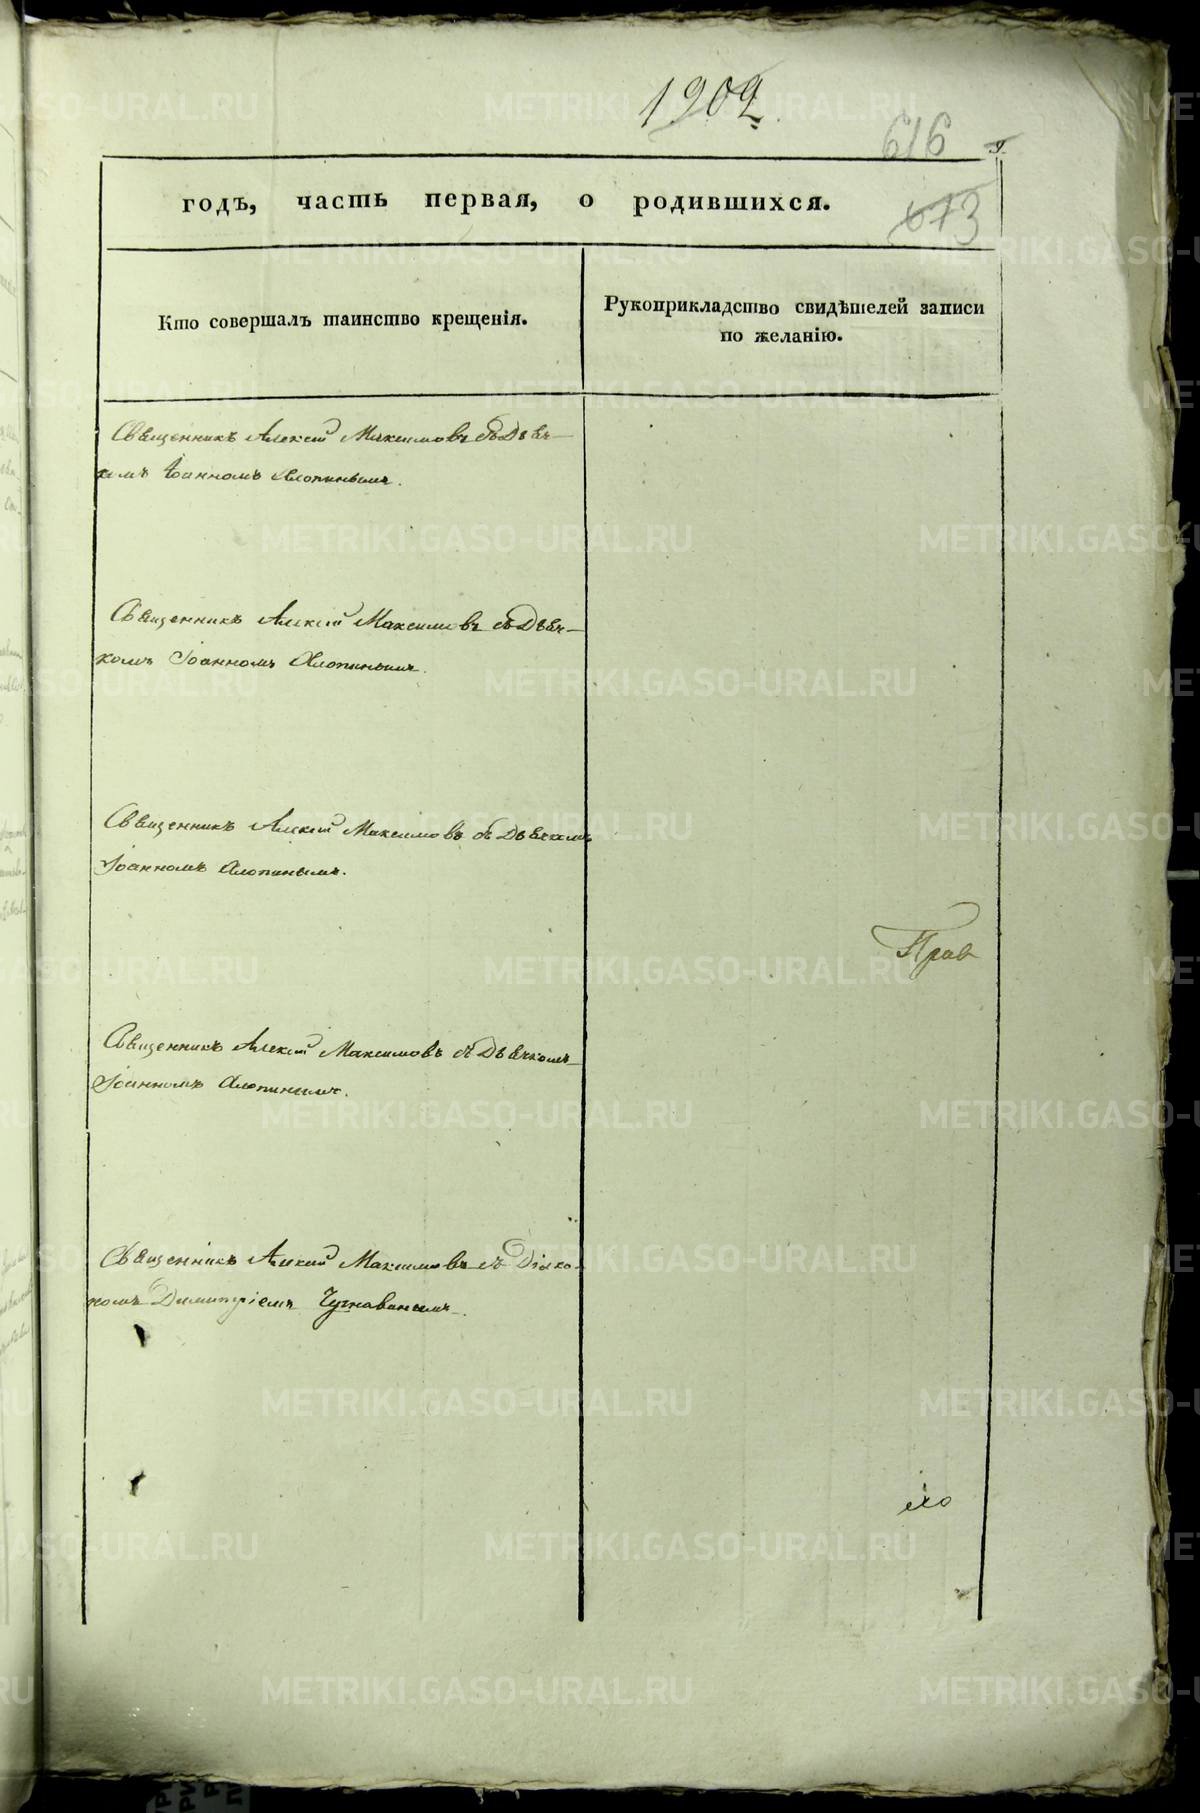 1902
616
годъ, часть первая, о родившихся.
673
Кто совершалъ таинство крещенія.
Рукоприкладство свидѣтелей записи
по желанію.
Священникъ Алексій Максимовъ съ Дьяч-
комъ Іоанномъ Хлопинымъ.
Священникъ Алексій Максимовъ съ Дьяч-
комъ Іоанномъ Хлопинымъ.
Священникъ Алексій Максимовъ съ Дьячкомъ
Іоанномъ Хлопинымъ.
Прав
Священникъ Алексій Максимовъ съ Дьячкомъ
Іоанномъ Хлопинымъ.
Священникъ Алексій Максимовъ съ Діако-
номъ Димитріемъ
METRIKI.GASO-URAL.RU